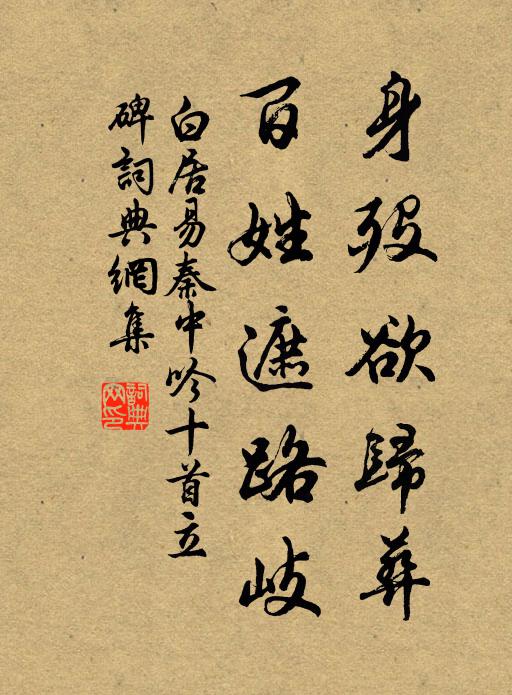 身歿欲歸葬
百姓遮路岐
白居易秦中吟十首立
碑詞典網集
詞典网印